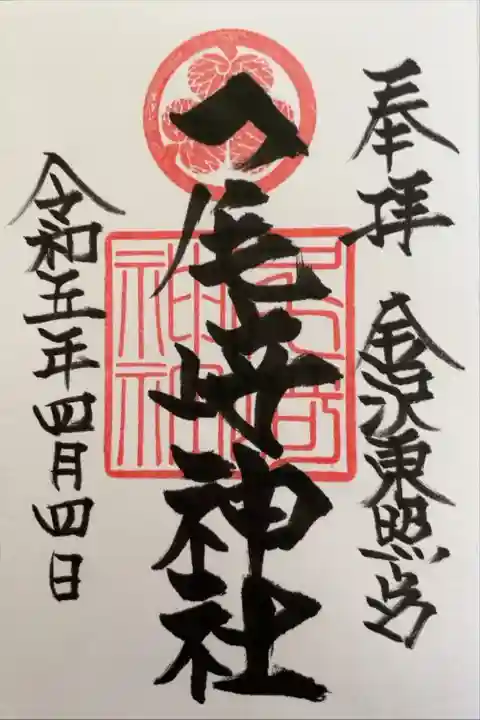 奉拝 金沢東照宮
尾崎神社
尾崎
神社
令和五年四月四日